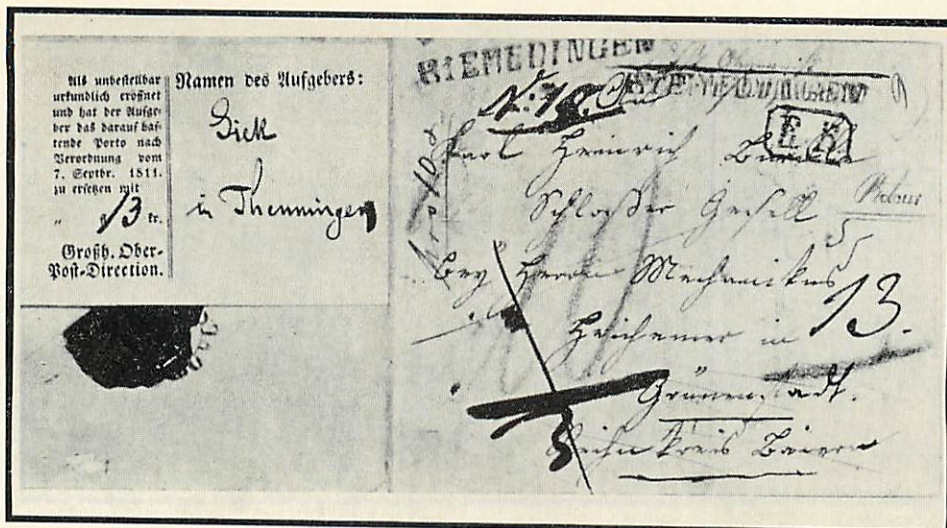 Als unbestellbar
urkundlich eröffnet
und hat der Aufge-
ber das darauf haf-
tende Porto nach
Verordnung vom
7. Septbr. 1811.
zu ersetzen mit
„ 13 kr.
Großh. Ober-
Post-Direction.
Namen des Aufgebers:
Sick
in Thenningen
RIEMEDINGEN
No 18.
E.R.
Karl Heinrich
Schlosser Gesell
bey Herrn Mechanikus
in 13.
Grünenstadt.
Rheinkreis Baiern